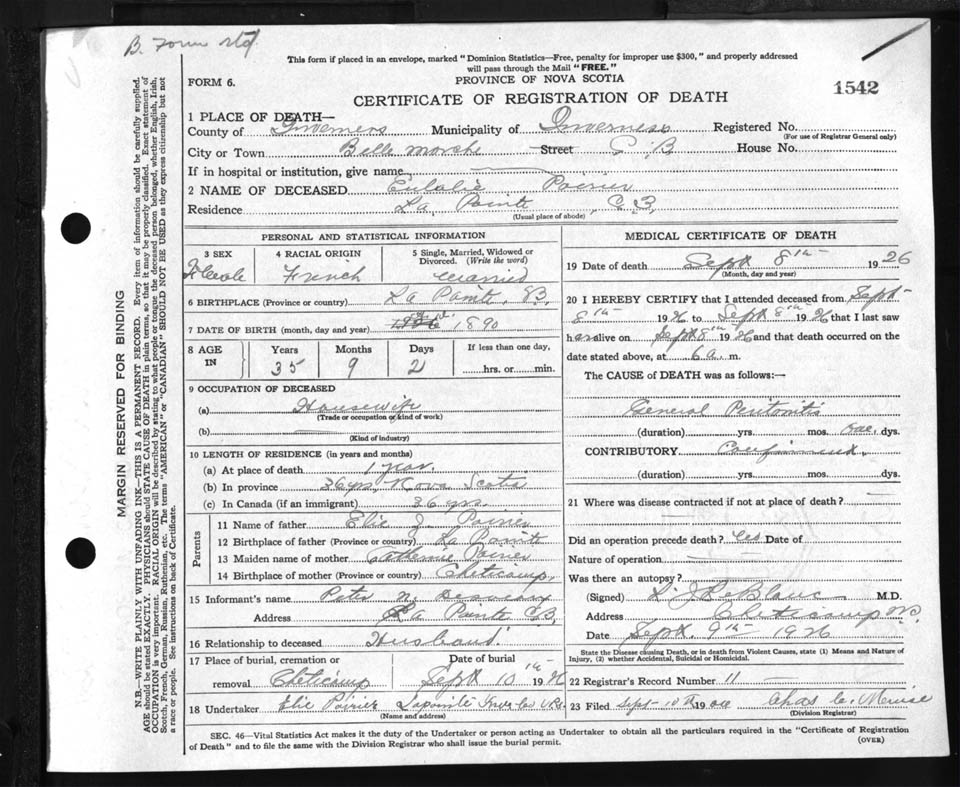 B. Form std.
This form if placed in an envelope, marked "Dominion Statistics—Free, penalty for improper use $300," and properly addressed
will pass through the Mail "FREE."
FORM 6.
PROVINCE OF NOVA SCOTIA
1542
CERTIFICATE OF REGISTRATION OF DEATH
1 PLACE OF DEATH—
County of Inverness Municipality of Inverness Registered No.
(For use of Registrar General only)
City or Town Belle Marche Street C B House No.
If in hospital or institution, give name
2 NAME OF DECEASED Eulalie Poirier
Residence La Pointe, C B,
(Usual place of abode)
PERSONAL AND STATISTICAL INFORMATION
3 SEX
4 RACIAL ORIGIN
5 Single, Married, Widowed or
Divorced. (Write the word)
French
Married
6 BIRTHPLACE (Province or country) La Pointe, B.
7 DATE OF BIRTH (month, day and year) 1890
8 AGE
IN
Years
Months
Days
If less than one day,
35
9
2
hrs. or min.
9 OCCUPATION OF DECEASED
(a) Housewife
(Trade or occupation or kind of work)
(b)
(Kind of industry)
10 LENGTH OF RESIDENCE (in years and months)
(a) At place of death 1 year.
(b) In province 36 yrs, Nova Scotia
(c) In Canada (if an immigrant) 36 yrs.
Parents
11 Name of father Elie J. Poirier
12 Birthplace of father (Province or country) La Pointe
13 Maiden name of mother Catherine Poirier
14 Birthplace of mother (Province or country) Cheticamp,
15 Informant's name Peter N.
Address La Pointe CB,
16 Relationship to deceased Husband.
17 Place of burial, cremation or
removal Cheticamp
Date of burial
Sept 10th 1926
18 Undertaker Elie Poirier Lapointe Inver Co N.S.
(Name and address)
MEDICAL CERTIFICATE OF DEATH
19 Date of death Sept 8th 1926
(Month, day and year)
20 I HEREBY CERTIFY that I attended deceased from Sept
8th 1926 to Sept 8th 1926 that I last saw
her alive on Sept 8th 1926 and that death occurred on the
date stated above, at 6 a. m.
The CAUSE of DEATH was as follows:—
General Peritonitis
(duration) yrs. mos. One dys.
CONTRIBUTORY Confinement.
(duration) yrs. mos. dys.
21 Where was disease contracted if not at place of death?
Did an operation precede death? Yes Date of
Nature of operation
Was there an autopsy?
(Signed) L. J. LeBlanc M.D.
Address Cheticamp N.S.
Date Sept. 9th 1926
State the Disease causing Death, or in death from Violent Causes, state (1) Means and Nature of
Injury, (2) whether Accidental, Suicidal or Homicidal.
22 Registrar's Record Number 11
23 Filed Sept. 10th 19 Chas. Le. Meuise
(Division Registrar)
SEC. 46—Vital Statistics Act makes it the duty of the Undertaker or person acting as Undertaker to obtain all the particulars required in the "Certificate of Registration
of Death" and to file the same with the Division Registrar who shall issue the burial permit.
(OVER)
MARGIN RESERVED FOR BINDING
N.B.—WRITE PLAINLY, WITH UNFADING INK—THIS IS A PERMANENT RECORD. Every item of information should be carefully supplied.
AGE should be stated EXACTLY. PHYSICIANS should STATE CAUSE OF DEATH in plain terms, so that it may be properly classified. Exact statement of
OCCUPATION is very important. RACIAL ORIGIN will be described by stating to what people or tongue the deceased person belonged, whether English, Irish,
Scotch, French, German, Russian, Ruthenian, etc. The terms "AMERICAN" or "CANADIAN" SHOULD NOT BE USED as they express citizenship but not
a race or people. See instructions on back of Certificate.